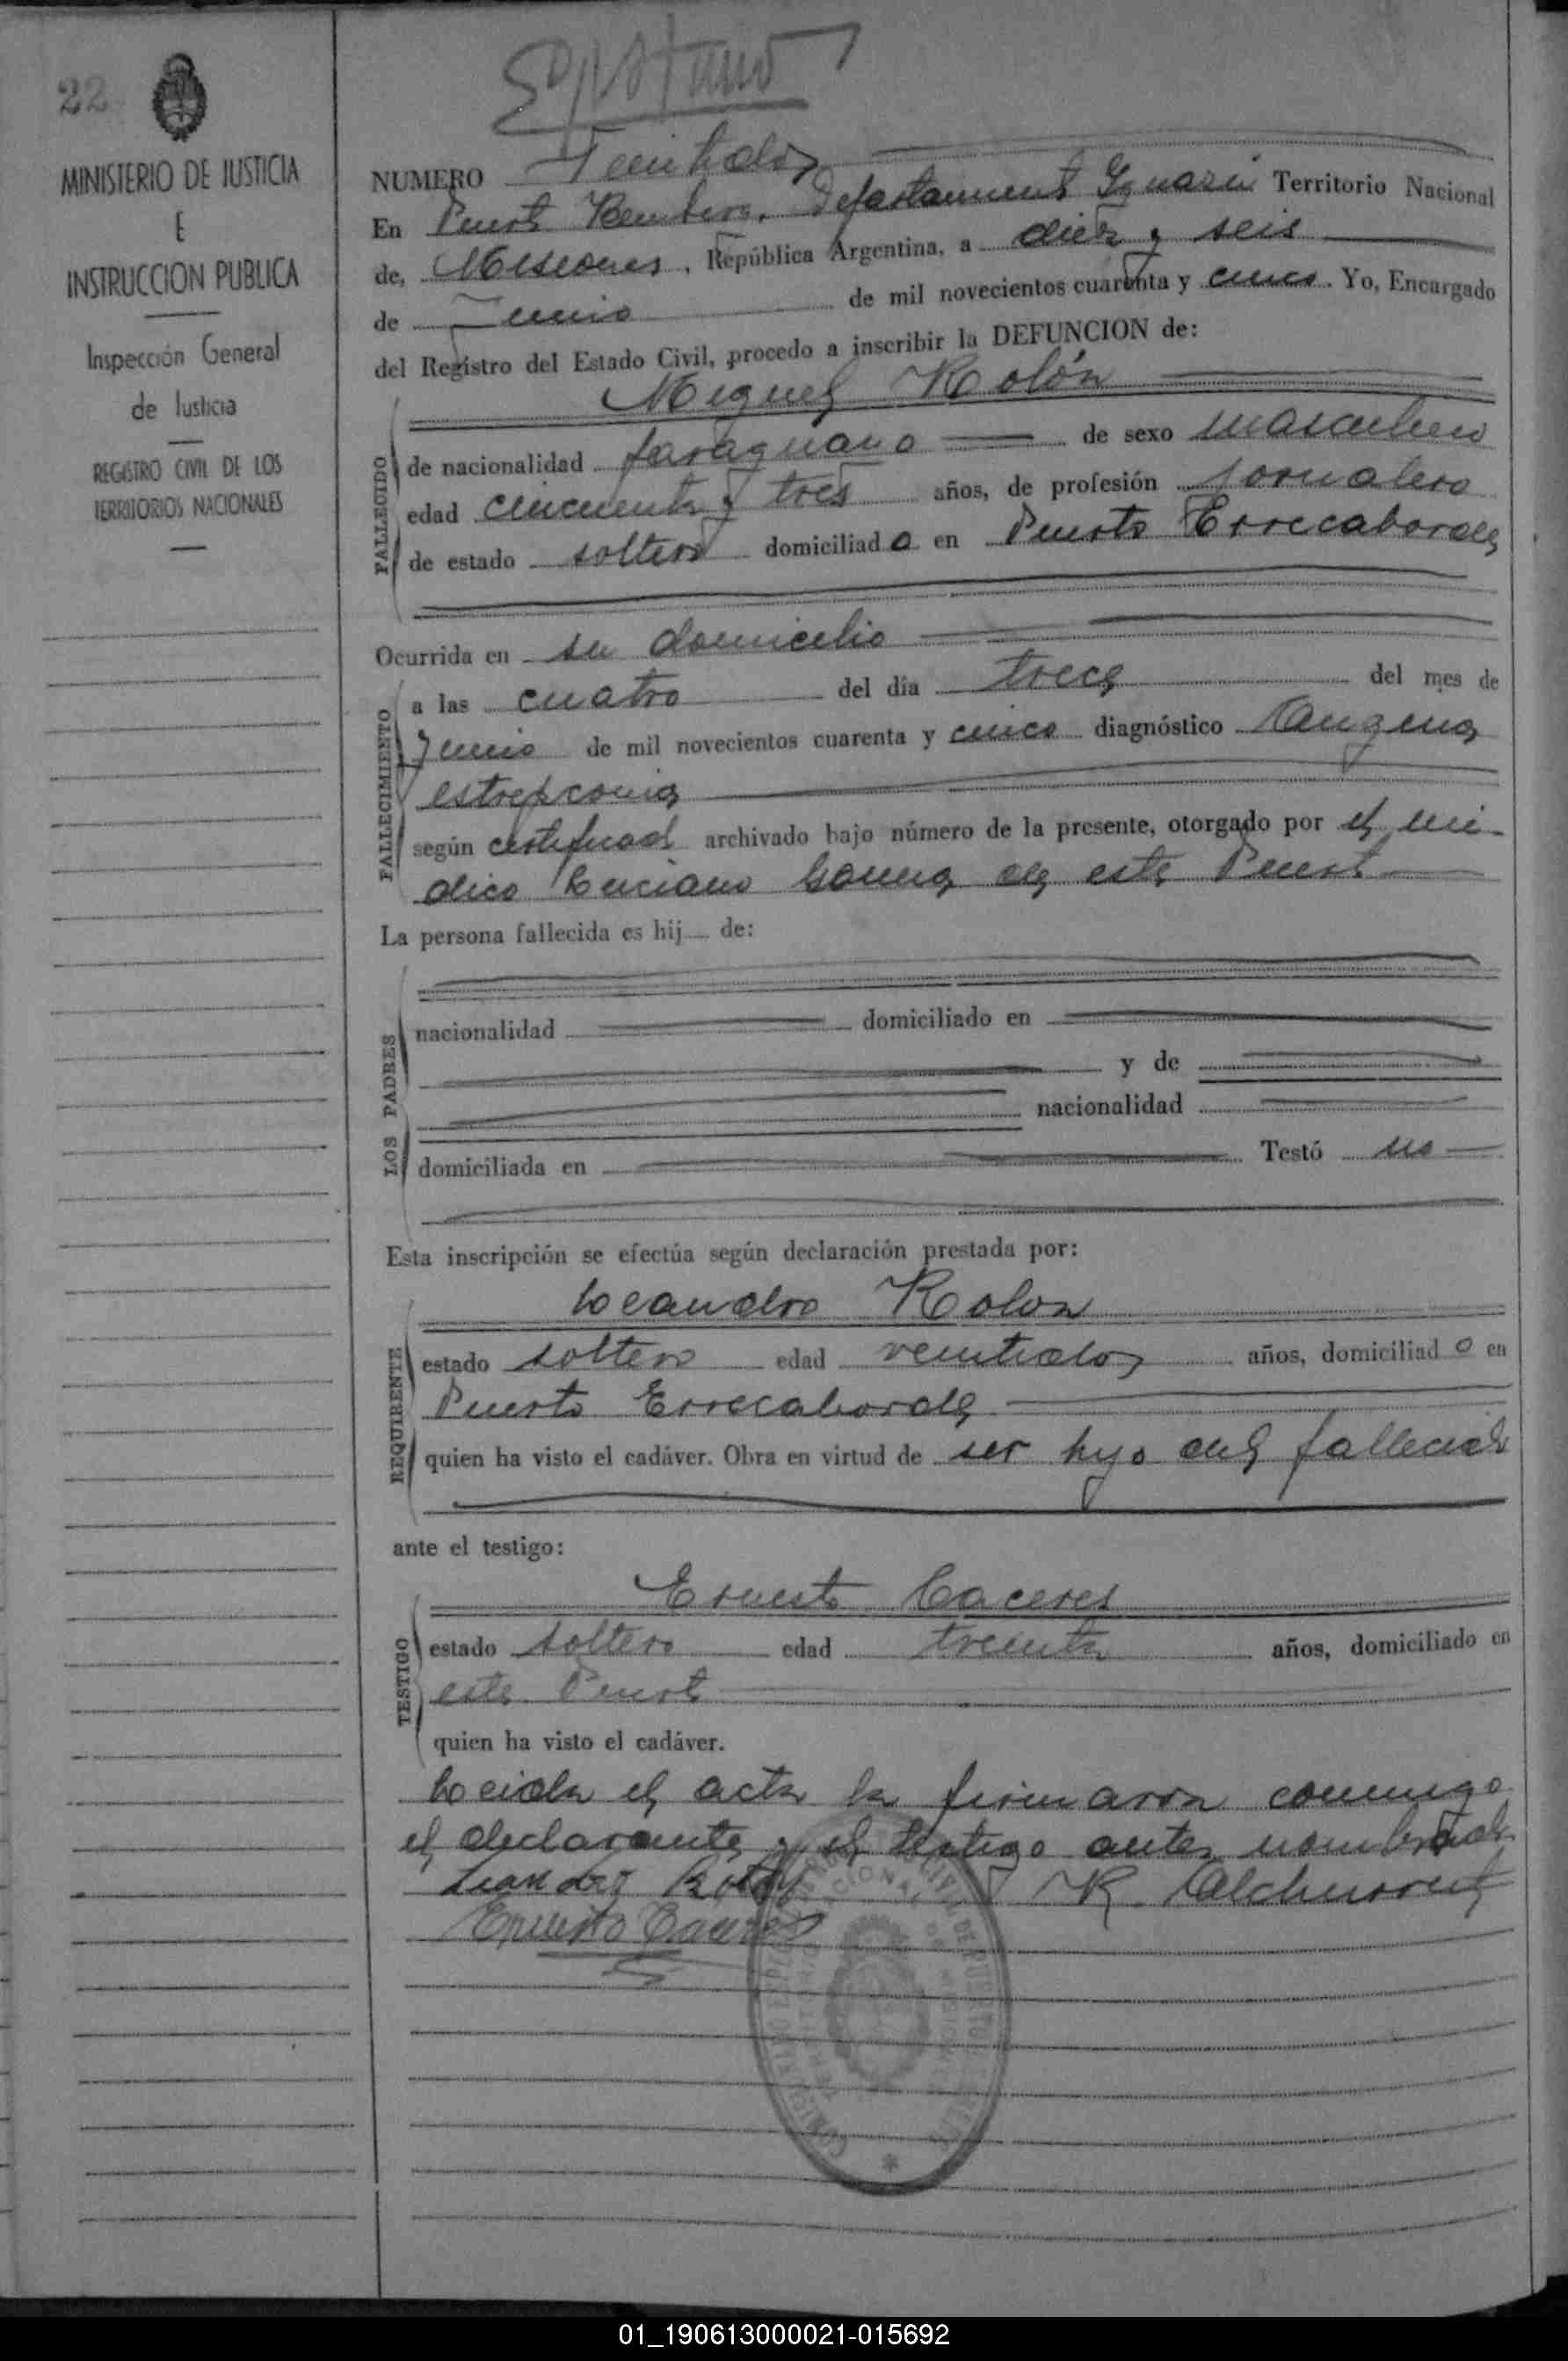 22
MINISTERIO DE JUSTICIA
E
INSTRUCCION PUBLICA
Inspección General
de Justicia
REGISTRO CIVIL DE LOS
TERRITORIOS NACIONALES
NUMERO Veintidos
En Puerto Bemberg, Departamento Iguazú Territorio Nacional
de, Misiones, República Argentina, a diez y seis
de Junio de mil novecientos cuarenta y cinco. Yo, Encargado
del Registro del Estado Civil, procedo a inscribir la DEFUNCION de:
Miguel Rolón
FALLECIDO
de nacionalidad paraguaya de sexo masculino
edad cincuenta y tres años, de profesión jornalero
de estado soltero domiciliado en Puerto Errecaborde
Ocurrida en su domicilio
FALLECIMIENTO
a las cuatro del día trece del mes de
Junio de mil novecientos cuarenta y cinco diagnóstico
según certificado archivado bajo número de la presente, otorgado por el mé-
dico Luciano de este Puerto
La persona fallecida es hij de:
LOS PADRES
nacionalidad domiciliado en
y de
nacionalidad
domiciliada en Testó no
Esta inscripción se efectúa según declaración prestada por:
Leandro Rolon
REQUIRENTE
estado soltero edad veintidos años, domiciliado en
Puerto Errecaborde
quien ha visto el cadáver. Obra en virtud de ser hijo del fallecido
ante el testigo:
Ernesto Caceres
TESTIGO
estado soltero edad treinta años, domiciliado en
este Puerto
quien ha visto el cadáver.
Leida el acta la firmaron conmigo
el declarante y el testigo antes nombrado
Leandro Rolon R
Ernesto Caceres
01_190613000021-015692